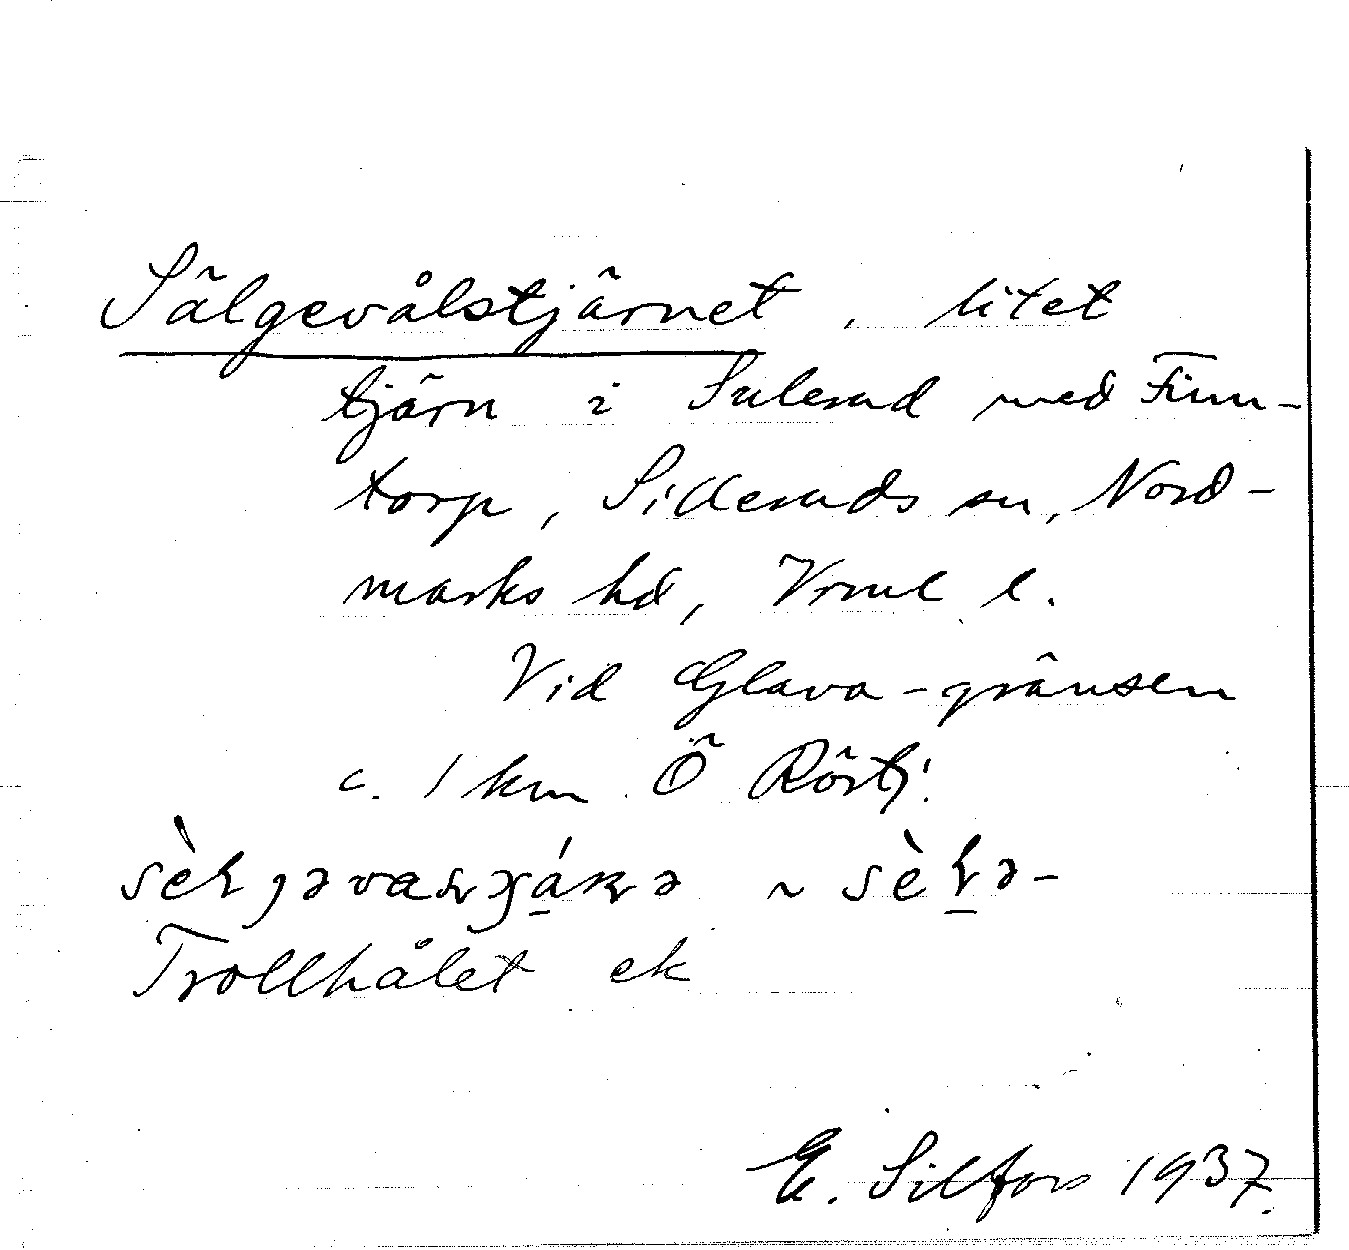 Sälgevålstjärnet, litet
tjärn i Sulerud med Finn-
torp, Silleruds sn, Nord-
marks hd, Vrml l.
Vid Glava-gränsen
c. 1 km Ö Rörtj!
~
Trollhålet ek
E. Silfors 1937.